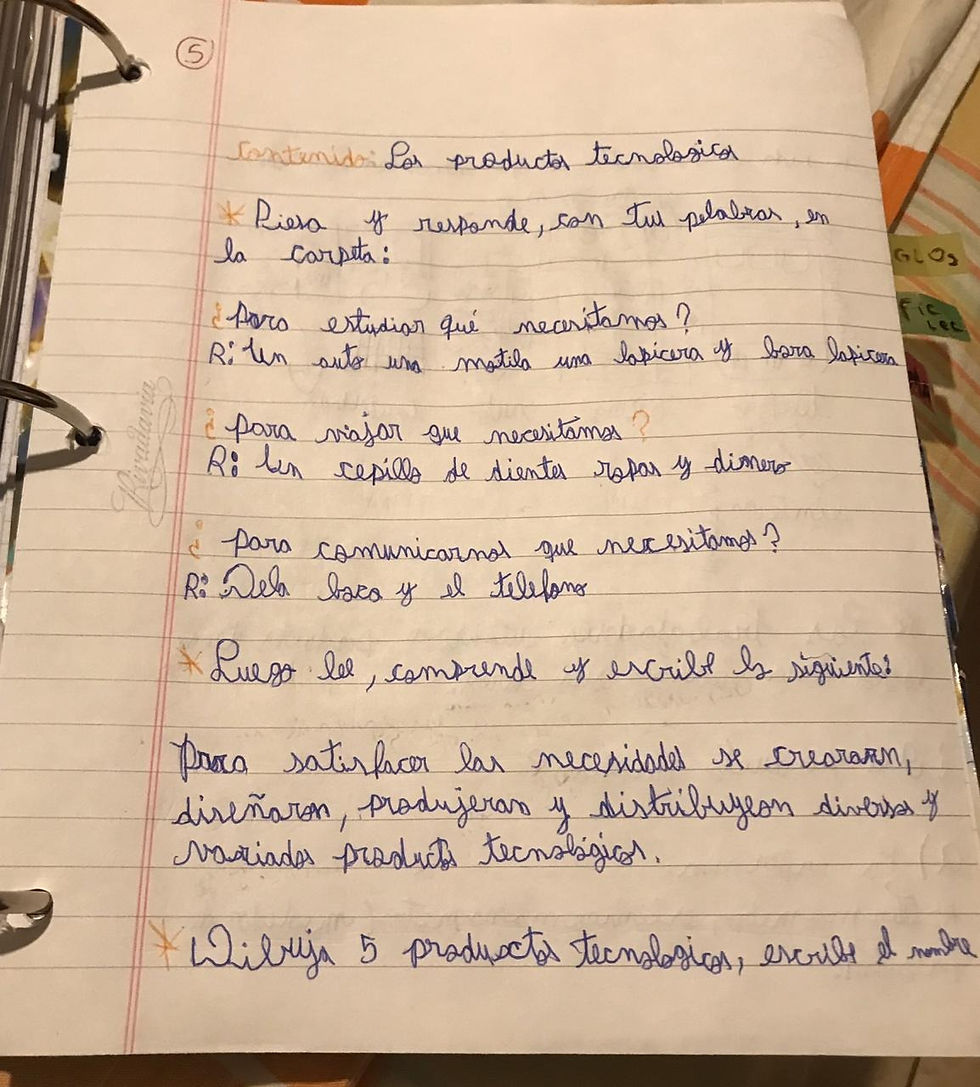 5
Contenido: Los productos tecnologicos
* Piesa y responde, con tus pelabras, en
la carpeta:
¿Para estudiar qué necesitamos?
R: Un auto una motila una lapicera y bara lapicera
¿para viajar que necesitamos?
R: Un cepillo de dientes ropas y dinero
¿ para comunicarnos que necesitamos?
R: Dela boca y el telefono
* Luego lee, comprende y escribe lo siguiente:
Para satisfacer las necesidades se crearann,
diseñaron, produjeran y distribuyeon diversos y
variados productos tecnológicos.
* Dibuja 5 producctos tecnologicos, escribe el nombre
Rivadavia
GLOS
FIC
LEC